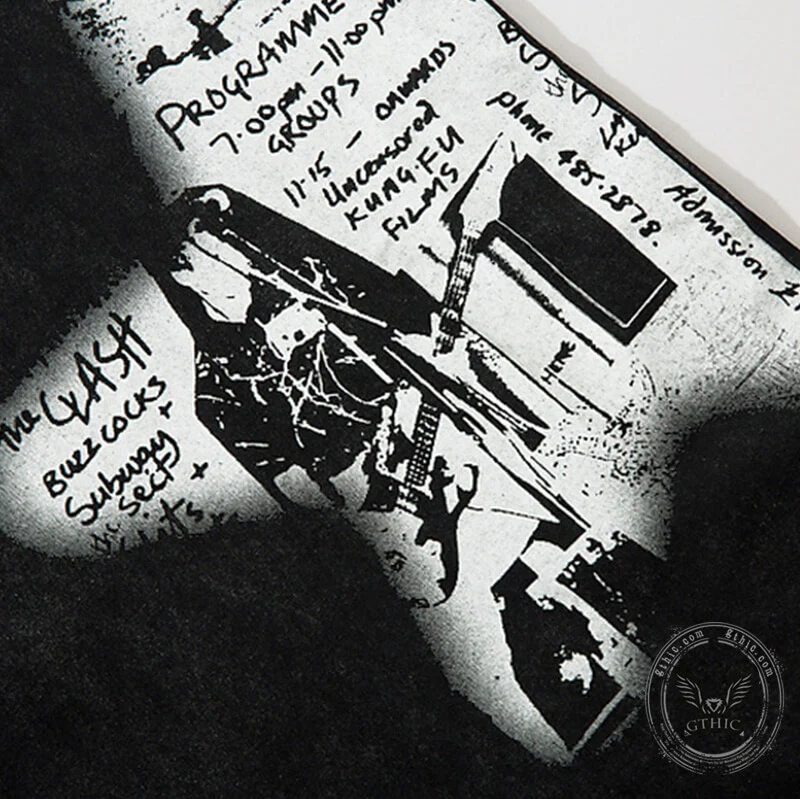 PROGRAMME
7.00pm - 11.00pm
GROUPS
11.15 - ONWARDS
Uncensored
KUNG-FU
FILMS
phone 485.2878.
Admission
HERE
the CLASH
BUZZCOCKS
+
Subway
Sect +
the
Slits
gthic.com
gthic.com
GTHIC